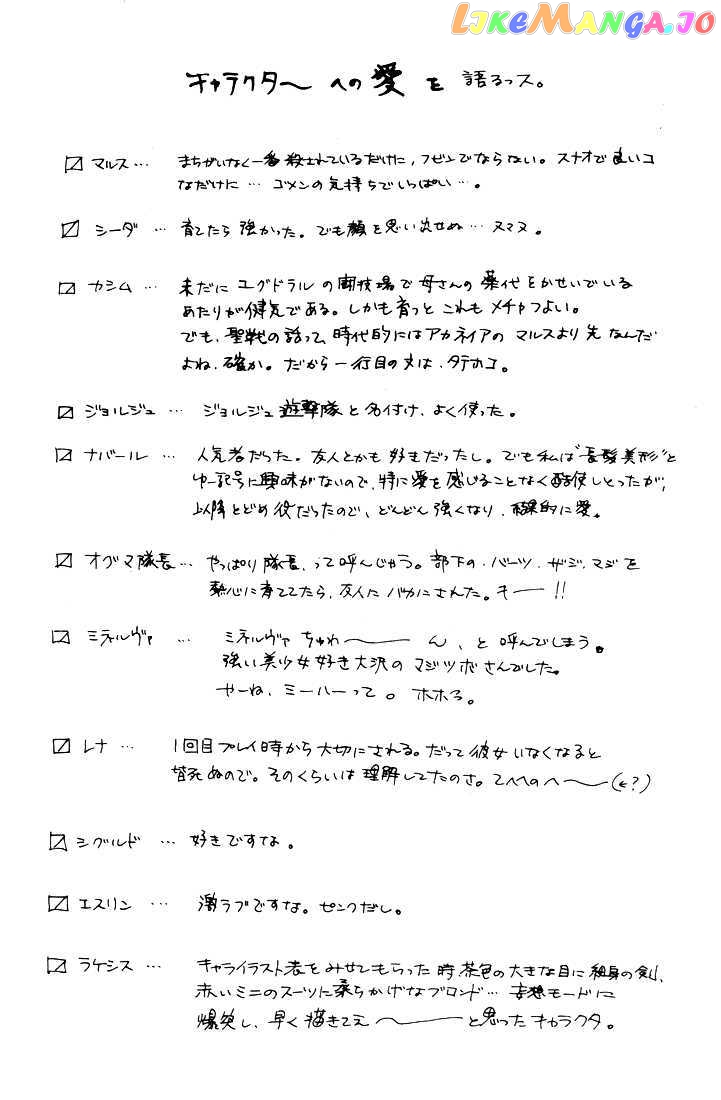 LIKEMANGA.IO
キャラクターへの愛を語るっス。
☑ マルス… まちがいなく一番殺されているだけに、フビンでならない。スナオで良いコ
なだけに… ゴメンの気持ちでいっぱい…。
☑ シーダ … 育てたら強かった。でも顔を思い出せぬ…ヌマヌ。
☑ カシム … 未だにユグドラルの闘技場で母さんの薬代をかせいでいる
あたりが健気である。しかも育つとこれもメチャつよい。
でも、聖戦の話って、時代的にはアカネイアのマルスより先なんだ
よね、確か。だから一行目の文は、タテホコ。
☑ ジョルジュ … ジョルジュ遊撃隊と名付け、よく使った。
☑ ナバール … 人気者だった。友人とかも好きだったし。でも私は"長髪美形"と
ゆー記号に興味がないので、特に愛を感じることなく酷使しとったが、
以降とどめ役だったので、どんどん強くなり、結果的に愛。
☑ オグマ隊長… やっぱり隊長、って呼んじゃう。部下の・バーツ・サジ・マジを
熱心に育ててたら、友人にバカにされた。キー!!
☑ ミネルヴァ … ミネルヴァちゅわ〜ん、と呼んでしまう。
強い美少女好き大沢のマジツボさんでした。
やーね、ミーハーって。ホホろ。
☑ レナ … 1回目プレイ時から大切にされる。だって彼女いなくなると
皆死ぬので。そのくらいは理解してたのさ。てへへのへ〜(←?)
☑ シグルド … 好きですな。
☑ エスリン … 激ラブですな。ピンクだし。
☑ ラケシス … キャライラスト表をみせてもらった時、茶色の大きな目に細身の剣、
赤いミニのスーツに柔らかげなブロンド…妄想モードに
爆発し、早く描きてえ〜と思ったキャラクタ。